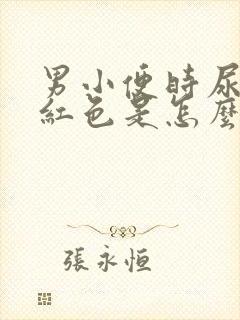 男小便時尿
紅色是怎麼
張永恒